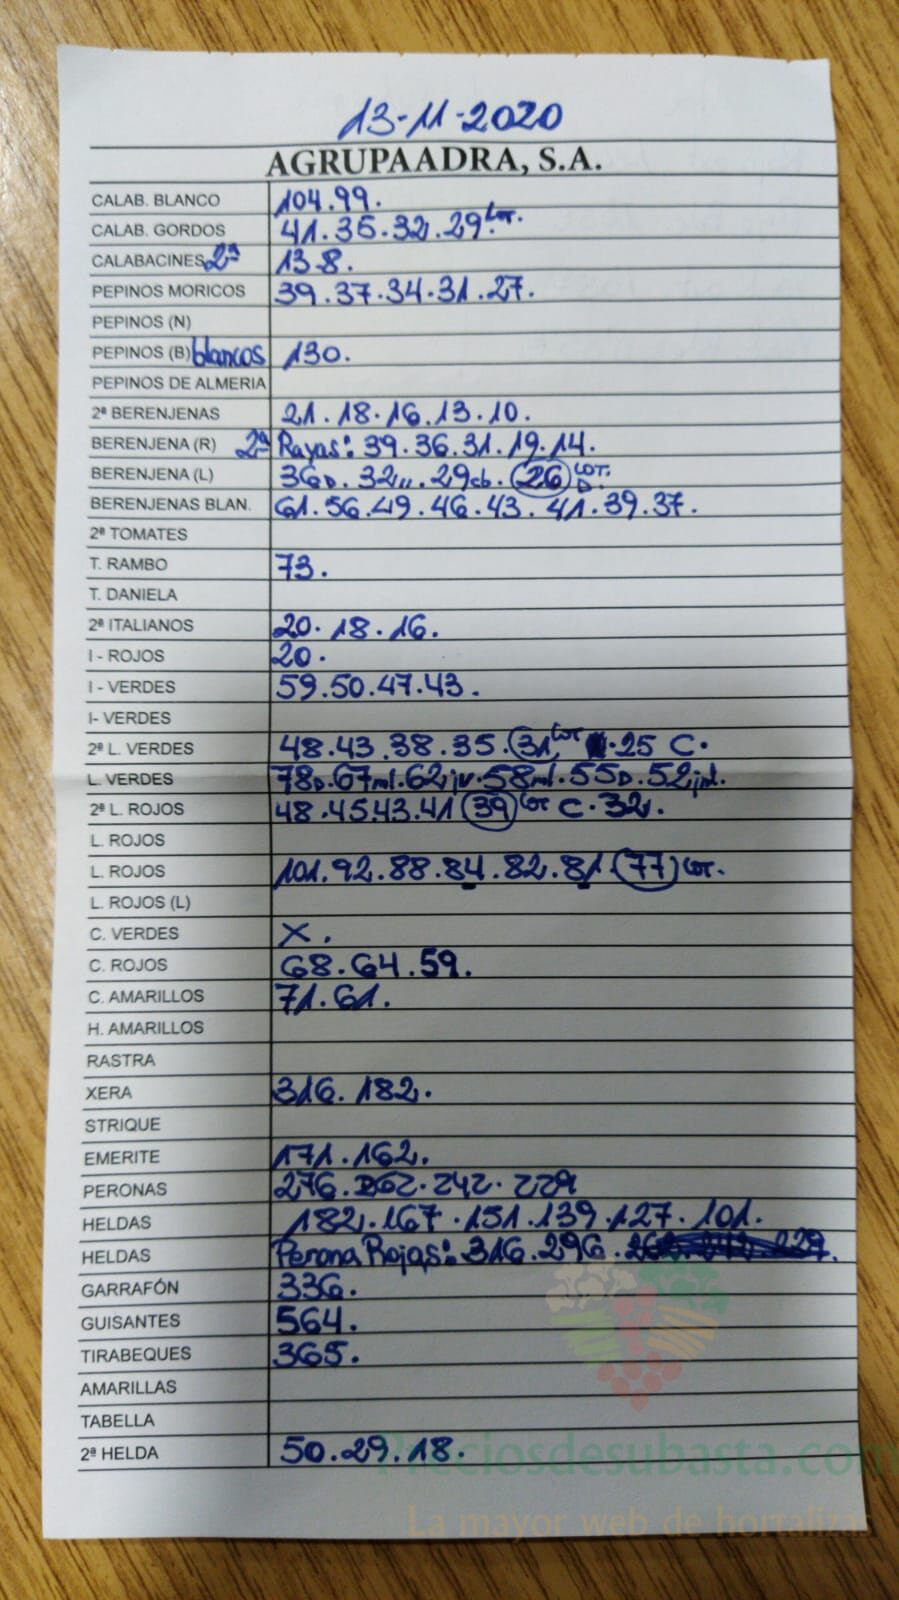 13-11-2020
AGRUPAADRA, S.A.
CALAB. BLANCO 104.99.
CALAB. GORDOS 41.35.32.29 Cor.
CALABACINES 2ª 13.8.
PEPINOS MORICOS 39.37.34.31.27.
PEPINOS (N)
PEPINOS (B) blancos 130.
PEPINOS DE ALMERIA
2ª BERENJENAS 21.18.16.13.10.
BERENJENA (R) 2ª Rayas: 39.36.31.19.14.
BERENJENA (L) 36D. 32„. 29cb. 26 Cor. D.
BERENJENAS BLAN. 61.56.49.46.43.41.39.37.
2ª TOMATES
T. RAMBO 73.
T. DANIELA
2ª ITALIANOS 20.18.16.
I - ROJOS 20.
I - VERDES 59.50.47.43.
I- VERDES
2ª L. VERDES 48.43.38.35.31 Cor .25 C.
L. VERDES 78D.67ml.62jv.58ml.55D.52jnl.
2ª L. ROJOS 48.45.43.41 39 Cor C.32.
L. ROJOS
L. ROJOS 101.92.88.84.82.81.77 Cor.
L. ROJOS (L)
C. VERDES X.
C. ROJOS 68.64.59.
C. AMARILLOS 71.61.
H. AMARILLOS
RASTRA
XERA 316.182.
STRIQUE
EMERITE 171.162.
PERONAS 276.262.242.229
HELDAS 182.167.151.139.127.101.
HELDAS Perona Rojas: 316.296.
GARRAFÓN 336.
GUISANTES 564.
TIRABEQUES 365.
AMARILLAS
TABELLA
2ª HELDA 50.29.18.
Preciosdesubasta.com
La mayor web de hortalizas